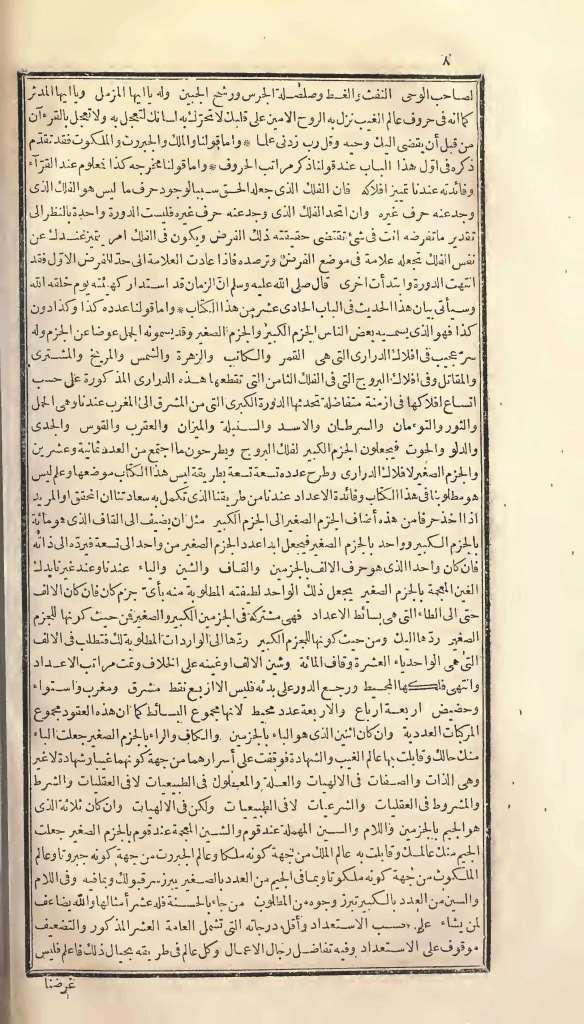 ٨
لصاحب الوحى النفث والغط وصلصلة الجرس ورشح الجبين وله يا أيها المزمل ويا أيها المدثر
كما انه فى حروف عالم الغيب نزل به الروح الامين على قلبك لا تحرك به لسانك لتعجل به ولا تعجل بالقرءآن
من قبل أن يقضى اليك وحيه وقل رب زدنى علما * وأما قولنا والملك والجبروت والملكوت فقد تقدّم
ذكره فى أول هذا الباب عند قولنا ذكر مراتب الحروف * وأما قولنا مخرجه كذا فعلوم عند القرّاء
وفائدته عندنا تمييز افلاكه فان الفلك الذى جعله الحق سببا لوجود حرف ما ليس هو الفلك الذى
وجد عنه حرف غيره وان اتحد الفلك الذى وجد عنه حرف غيره فليست الدورة واحدة بالنظر الى
تقدير ما تفرضه انت فى شئ تقتضى حقيقته ذلك الفرض ويكون فى الفلك امر يتميز عندك عن
نفس الفلك تجعله علامة فى موضع الفرض وترصده فاذا عادت العلامة الى حدّ الفرض الاوّل فقد
انتهت الدورة وابتدأت اخرى قال صلى الله عليه وسلم انّ الزمان قد استدار كهيئته يوم خلقه الله
وسيأتى بيان هذا الحديث فى الباب الحادى عشر من هذا الكتاب * وأما قولنا عدده كذا وكذا دون
كذا فهو الذى يسميه بعض الناس الجزم الكبير والجزم الصغير وقد يسمونه الجمل عوضا عن الجزم وله
سرّ عجيب فى افلاك الدرارى التى هى القمر والكاتب والزهرة والشمس والمريخ والمشترى
والمقاتل وفى افلاك البروج التى فى الفلك الثامن التى تقطعها هذه الدرارى المذكورة على حسب
اتساع افلاكها فى ازمنة متفاضلة تحدثها الدورة الكبرى التى من المشرق الى المغرب عندنا وهى الحمل
والثور والتوءمان والسرطان والاسد والسنبلة والميزان والعقرب والقوس والجدى
والدلو والحوت فيجعلون الجزم الكبير لفلك البروج ويطرحون ما اجتمع من العدد ثمانية وعشرين
والجزم الصغير لافلاك الدرارى وطرح عدده تسعة تسعة بطريقة ليس هذا الكتاب موضعها وعلم ليس
هو مطلوبنا فى هذا الكتاب وفائدة الاعداد عندنا من طريقنا الذى تكمل به سعادتنا ان المحقق او المريد
اذا اخذ حرفا من هذه أضاف الجزم الصغير الى الجزم الكبير مثل ان يضيف الى القاف الذى هو مائة
بالجزم الكبير وواحد بالجزم الصغير فيجعل ابدا عدد الجزم الصغير من واحد الى تسعة فيردّه الى ذاته
فان كان واحدا الذى هو حرف الالف بالجزمين والقاف والشين والياء عندنا وعند غيرنا بدل
الغين المعجمة بالجزم الصغير يجعل ذلك الواحد لطيفته المطلوبة منه بأى جزم كان فان كان الالف
حتى الى الطاء التى هى بسائط الاعداد فهى مشتركة فى الجزمين الكبير والصغير فمن حيث كونها للجزم
الصغير ردّها اليك ومن حيث كونها للجزم الكبير ردّها الى الواردات المطلوبة لك فتطلب فى الالف
التى هى الواحد ياء العشرة وقاف المائة وشين الالف او غينه على الخلاف وتمت مراتب الاعداد
وانتهى فلكها المحيط ورجع الدور على بدئه فليس الا اربع نقط مشرق ومغرب واستواء
وحضيض اربعة ارباع والاربعة عدد محيط لانها مجموع البسائط كما ان هذه العقود مجموع
المركبات العددية وان كان اثنين الذى هو الباء بالجزمين والكاف والراء بالجزم الصغير جعلت الباء
منك حالك وقابلت بها عالم الغيب والشهادة فوقفت على أسرارهما من جهة كونهما غيبا وشهادة لا غير
وهى الذات والصفات فى الالهيات والعلة والمعلول فى الطبيعيات لا فى العقليات والشرط
والمشروط فى العقليات والشرعيات لا فى الطبيعيات ولكن فى الالهيات وان كان ثلاثة الذى
هو الجيم بالجزمين واللام والسين المهملة عند قوم والشين المعجمة عند قوم بالجزم الصغير جعلت
الجيم منك عالمك وقابلت به عالم الملك من جهة كونه ملكا وعالم الجبروت من جهة كونه جبروتا وعالم
الملكوت من جهة كونه ملكوتا وبما فى الجيم من العدد بالصغير يبرز سر قبولك وبما فيه وفى اللام
والسين من العدد بالكبير تبرز وجوه من المطلوب من جاء بالحسنة فله عشر أمثالها والله يضاعف
لمن يشاء على حسب الاستعداد وأقل درجاته التى تشمل العامة العشر المذكور والتضعيف
موقوف على الاستعداد وفيه تفاضل رجال الاعمال وكل عالم فى طريقه بحيال ذلك فاعلم فليس
غرضنا